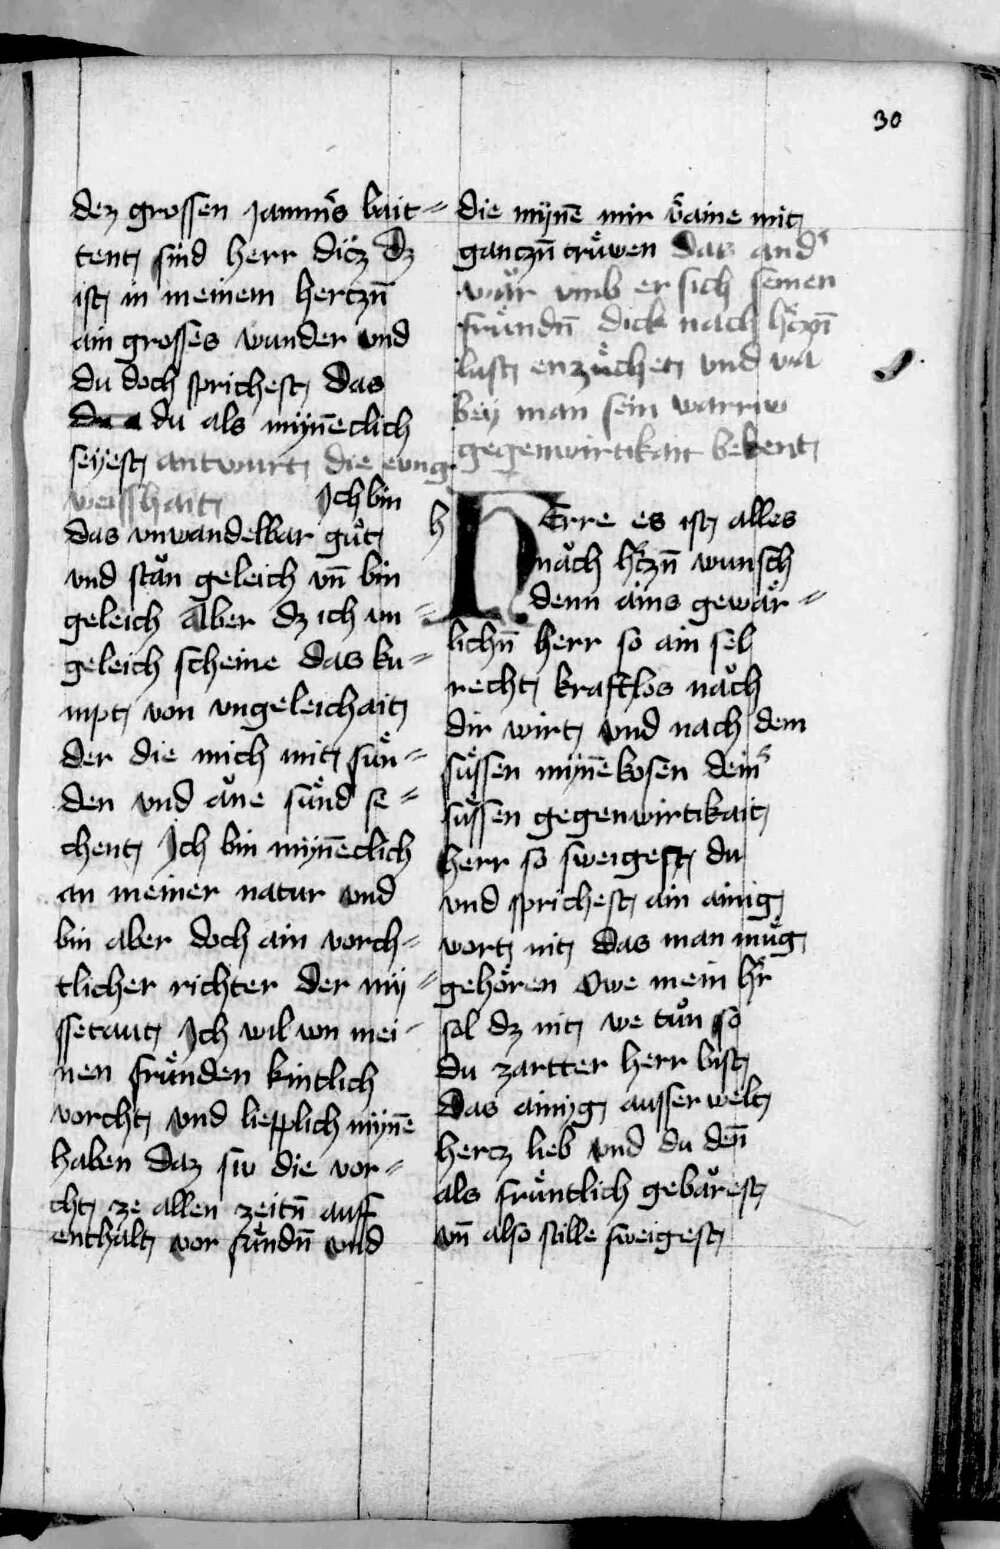 30
dez grossen Jamm's bait=
tent sind herr dicz dz
ist in meinem hertzn̄
ain grosses wunder vnd
du doch sprichest das
du als mÿn̄eclich
seÿest antwurt die ewig
weisshait Ich bin
das vnwandelbar gůt
vnd stån geleich vn̄ bin
geleich Aber dz ich vn=
geleich scheine das ku=
mpt von vngeleichait
der die mich mit sůn=
den vnd åne sůnd se=
chent Ich bin mÿn̄eclich
an meiner natur vnd
bin aber doch ain vorch=
tlicher richter der mÿ=
ssetaut Ich wil von mei=
nen frůnden kintlich
vorcht vnd liepplich mÿnē
haben daz sw die vor=
cht ze allen zeitn̄ auff
enthalt vor sůndn̄ vnd
die mÿnē mir v̊aine mit
ganczn̄ trůwen Das and's
wår vmb er sich seinen
frůndn̄ dick nach h'czn̄
lust enzůchet vnd wa
beÿ man sein warriw
gegenwirtikait bekent
h
HErre es ist alles
nåch h'czn̄ wunsch
denn ains gewår=
lichn̄ herr so ain sel
recht kraftlos nåch
dir wirt vnd nach dem
sůssen mÿnēkosen dein's
sůssen gegenwirtikait
herr so sweigest du
vnd sprichest ain ainig
wort nit Das man můg
gehören Owe mein h'r
sol dz nit we tůn so
du zartter herr bist
Das ainÿg ausserwelt
hercz lieb vnd du den̄
als frůntlich gebårest
vn̄ also stille sweigest